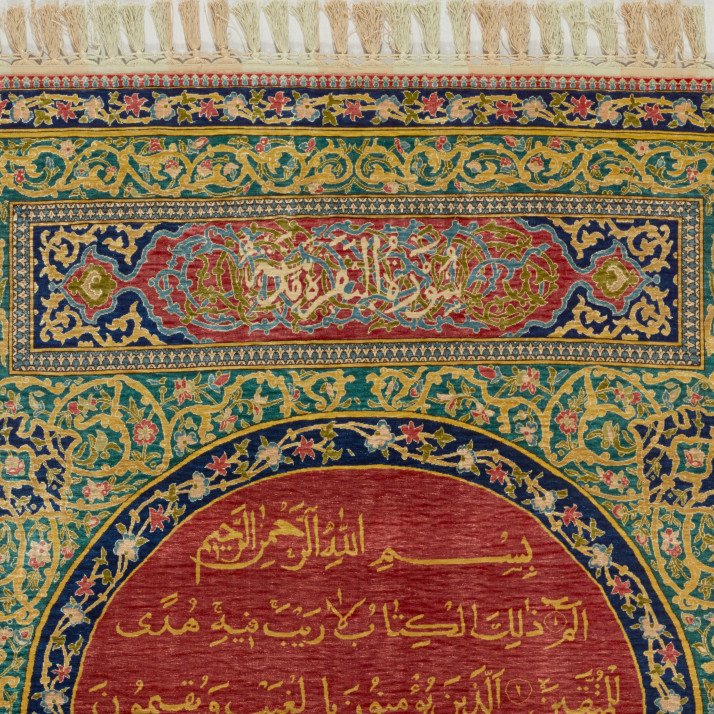 سُورَةُ الْبَقَرَةِ مَدَنِيَّة
بِسْمِ اللَّهِ الرَّحْمَٰنِ الرَّحِيمِ
الم ۝١ ذَٰلِكَ الْكِتَابُ لَا رَيْبَ فِيهِ هُدًى
لِلْمُتَّقِينَ ۝٢ الَّذِينَ يُؤْمِنُونَ بِالْغَيْبِ وَيُقِيمُونَ